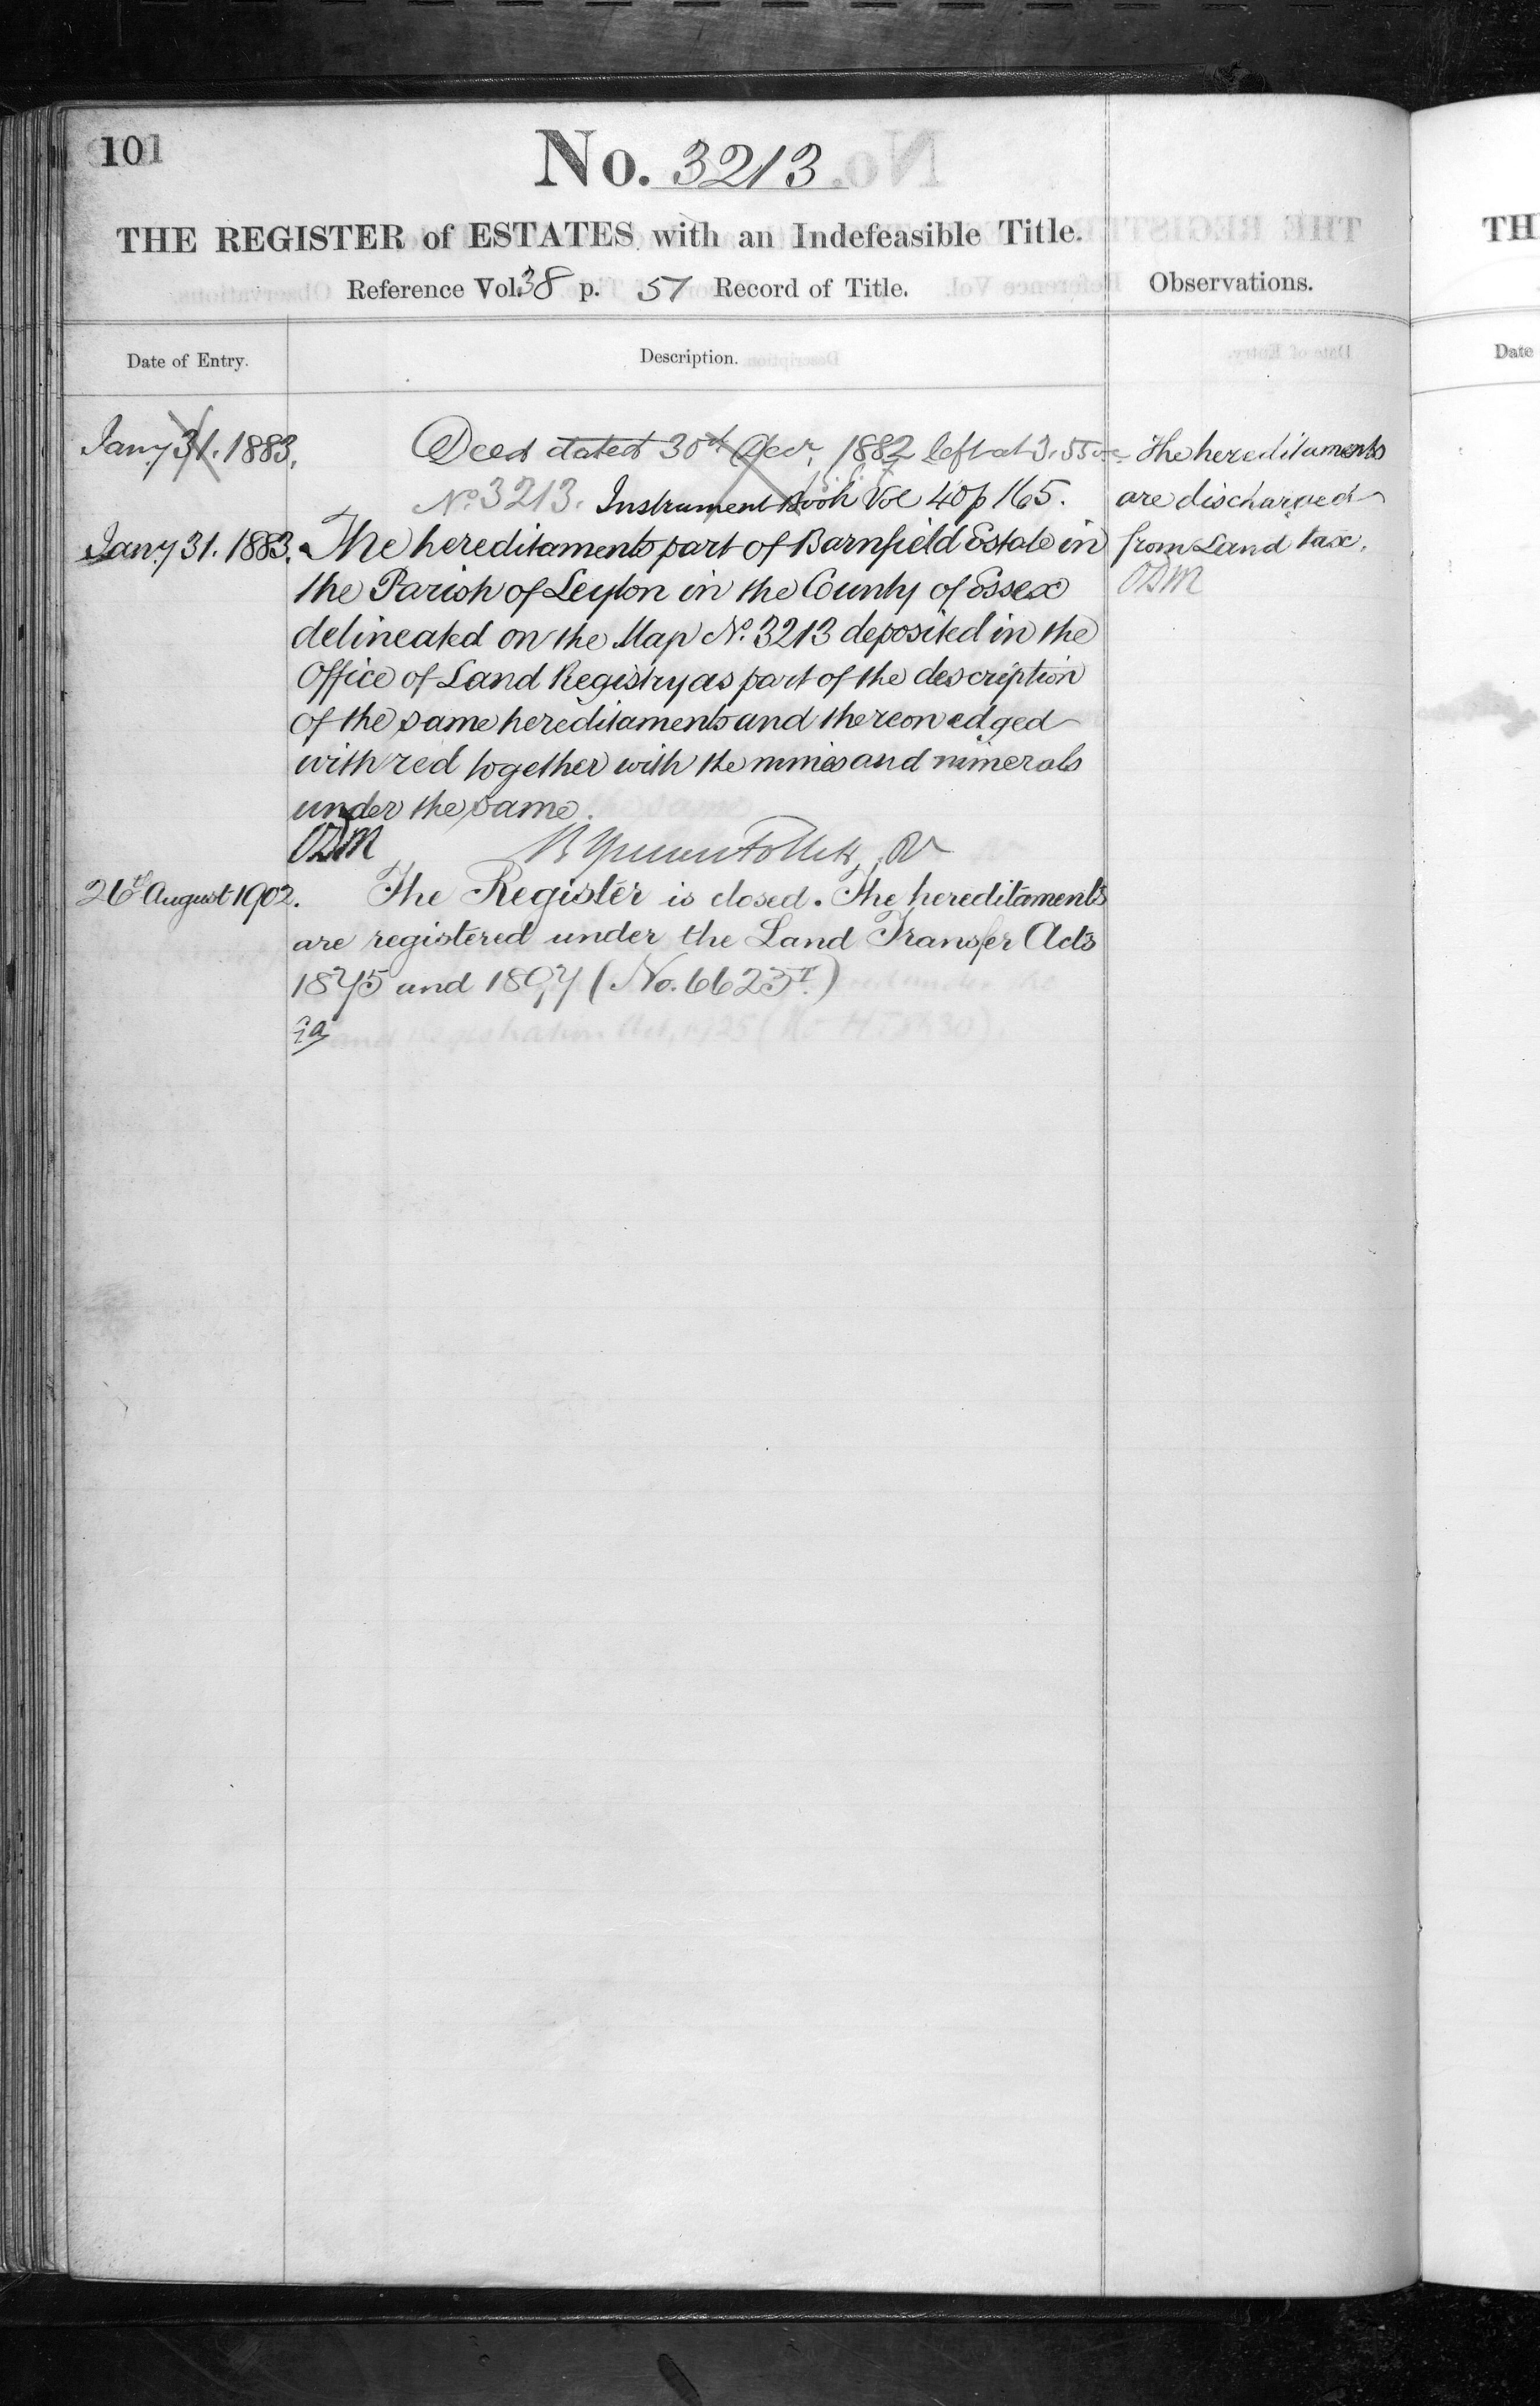 101
No. 3213
THE REGISTER of ESTATES with an Indefeasible Title.
Reference Vol. 38 p. 57 Record of Title.
Observations.
Date of Entry.
Description.
Jany 31. 1883.
Deed dated 30th Decr. 1882 left at 3.55
No. 3213. Instrument Book Vol 40 p 165.
The hereditaments
are discharged
from Land tax.
ODM
Jany 31. 1883.
The hereditaments part of Barnfield Estate in
the Parish of Leyton in the County of Essex
delineated on the Map No. 3213 deposited in the
Office of Land Registry as part of the description
of the same hereditaments and thereon edged
with red together with the mines and minerals
under the same.
ODM
26th August 1902.
The Register is closed. The hereditaments
are registered under the Land Transfer Acts
1875 and 1897 (No. 66235.)
TH
Date